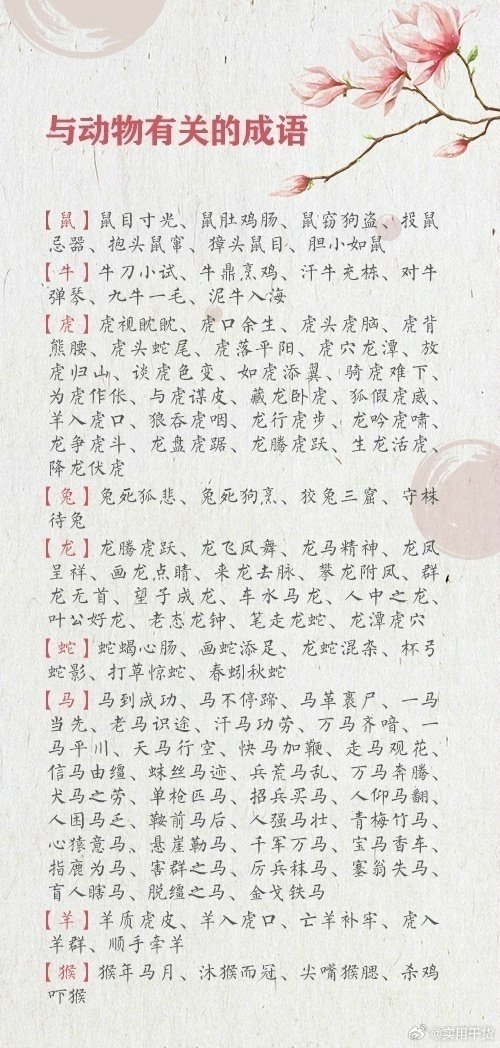 与动物有关的成语
【鼠】鼠目寸光、鼠肚鸡肠、鼠窃狗盗、投鼠
忌器、抱头鼠窜、獐头鼠目、胆小如鼠
【牛】牛刀小试、牛鼎烹鸡、汗牛充栋、对牛
弹琴、九牛一毛、泥牛入海
【虎】虎视眈眈、虎口余生、虎头虎脑、虎背
熊腰、虎头蛇尾、虎落平阳、虎穴龙潭、放
虎归山、谈虎色变、如虎添翼、骑虎难下、
为虎作伥、与虎谋皮、藏龙卧虎、狐假虎威、
羊入虎口、狼吞虎咽、龙行虎步、龙吟虎啸、
龙争虎斗、龙盘虎踞、龙腾虎跃、生龙活虎、
降龙伏虎
【兔】兔死狐悲、兔死狗烹、狡兔三窟、守株
待兔
【龙】龙腾虎跃、龙飞凤舞、龙马精神、龙凤
呈祥、画龙点睛、来龙去脉、攀龙附凤、群
龙无首、望子成龙、车水马龙、人中之龙、
叶公好龙、老态龙钟、笔走龙蛇、龙潭虎穴
【蛇】蛇蝎心肠、画蛇添足、龙蛇混杂、杯弓
蛇影、打草惊蛇、春蚓秋蛇
【马】马到成功、马不停蹄、马革裹尸、一马
当先、老马识途、汗马功劳、万马齐喑、一
马平川、天马行空、快马加鞭、走马观花、
信马由缰、蛛丝马迹、兵荒马乱、万马奔腾、
犬马之劳、单枪匹马、招兵买马、人仰马翻、
人困马乏、鞍前马后、人强马壮、青梅竹马、
心猿意马、悬崖勒马、千军万马、宝马香车、
指鹿为马、害群之马、厉兵秣马、塞翁失马、
盲人瞎马、脱缰之马、金戈铁马
【羊】羊质虎皮、羊入虎口、亡羊补牢、虎入
羊群、顺手牵羊
【猴】猴年马月、沐猴而冠、尖嘴猴腮、杀鸡
吓猴
@实用干货